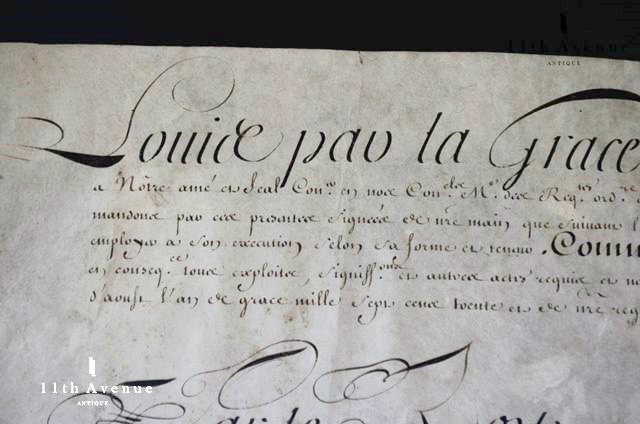 11th Avenue
ANTIQUE
Louis par la Grace
a Notre amé et feal Con.er en nos Con.
mandons par ces presentes signées de n.re main que suivant l
employer a son execution selon sa forme et teneur. Comm
en conseq.ce tous exploits, signiff.ons et autres actes requis et
d'aoust l'an de grace mille sept cens trente et de n.re reg
11th Avenue
ANTIQUE